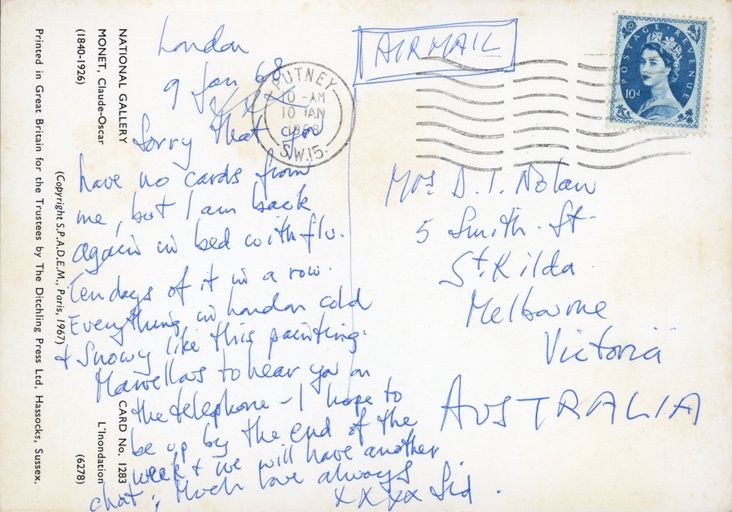 London
9 Jan 68
Sorry that you
have no cards from
me, but I am back
again in bed with flu.
Ten days of it in a row.
Everything in London cold
& Snowy like this painting.
Marvellous to hear you on
the telephone – I hope to
be up by the end of the
week & we will have another
chat, Much love always
xxxx Sid.
AIRMAIL
PUTNEY
10 - AM
10 JAN
1968
S.W.15.
POSTAGE REVENUE
10d
Mrs D. I. Nolan
5 Smith. St.
St. Kilda.
Melbourne
Victoria
AUSTRALIA
NATIONAL GALLERY
MONET, Claude-Oscar
(1840-1926)
CARD No. 1283
L'Inondation
(6278)
(Copyright S.P.A.D.E.M., Paris, 1967)
Printed in Great Britain for the Trustees by The Ditchling Press Ltd., Hassocks, Sussex.